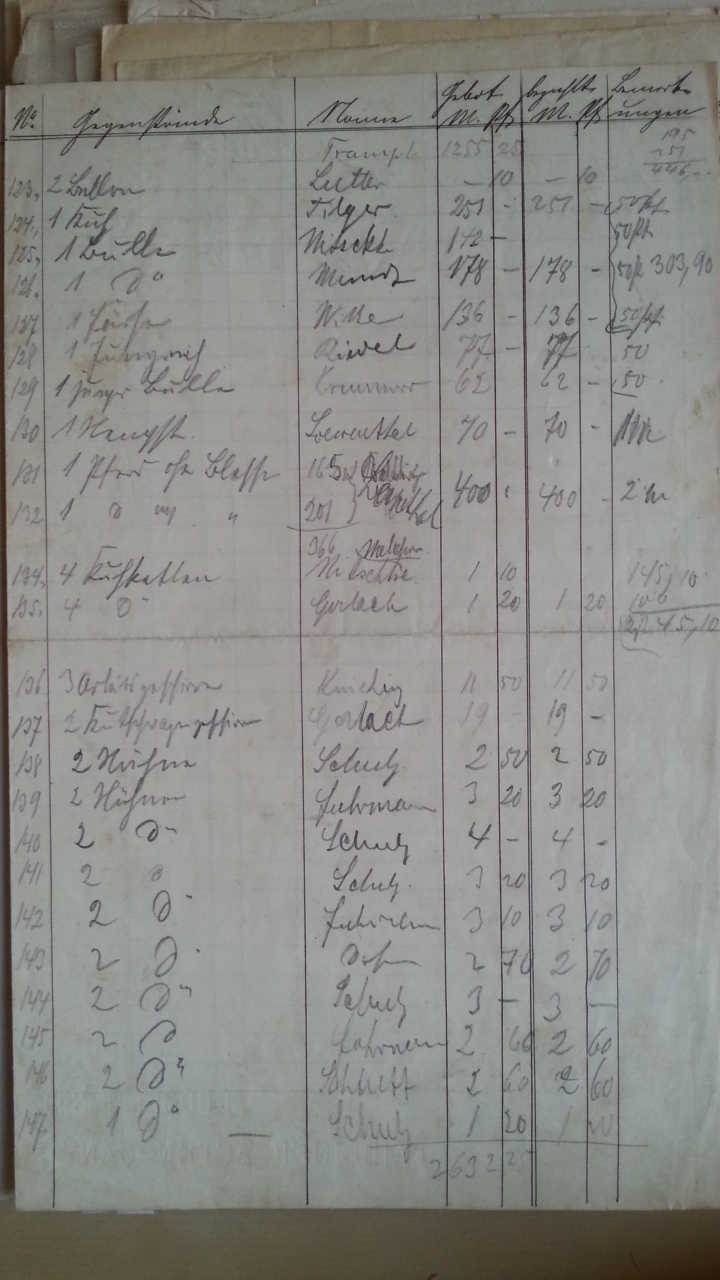 No. Gegenstände Name Gebot M. Pf. bezahlt M. Pf. Bemerkungen
Transp. 1255 25 195
251
446,-
123, 2 Lutter - 10 - 10
124, 1 Kuh Filger. 251 - 251 - 50 Pf
125, 1 Bulle Nitschke 142 - 50 Pf
126. 1 do Mundt 178 - 178 - 50 303,90
127 1 Färse Witte 136 - 136 - 50 Pf
128 1 Riedel 77 - 77 50
129 1 junger Bulle 62 62 - 50
130 1 Hengst. Loewenthal 70 - 70 -
131 1 Pferd ohne Blesse 165
400 400 - 2
132 1 do " 201
366
134, 4 Kuhketten Nitschke 1 10 145,10
135, 4 do Gerlach 1 20 1 20 100
245,10
136 3 Arbeitsgeschirre 11 50 11 50
137 2 Kutschwagengeschirre Gerlach 19 - 19 -
138 2 Hühner Schulz 2 50 2 50
139 2 Hühner Fuhrmann 3 20 3 20
140 2 do Schulz 4 - 4 -
141 2 do Schulz. 3 20 3 20
142 2 do Fuhrmann 3 10 3 10
143 2 do 2 70 2 70
144 2 do Schulz 3 - 3 -
145 2 do Fuhrmann 2 60 2 60
146 2 do 2 60 2 60
147 1 do Schulz 1 20 1 20
2632 25